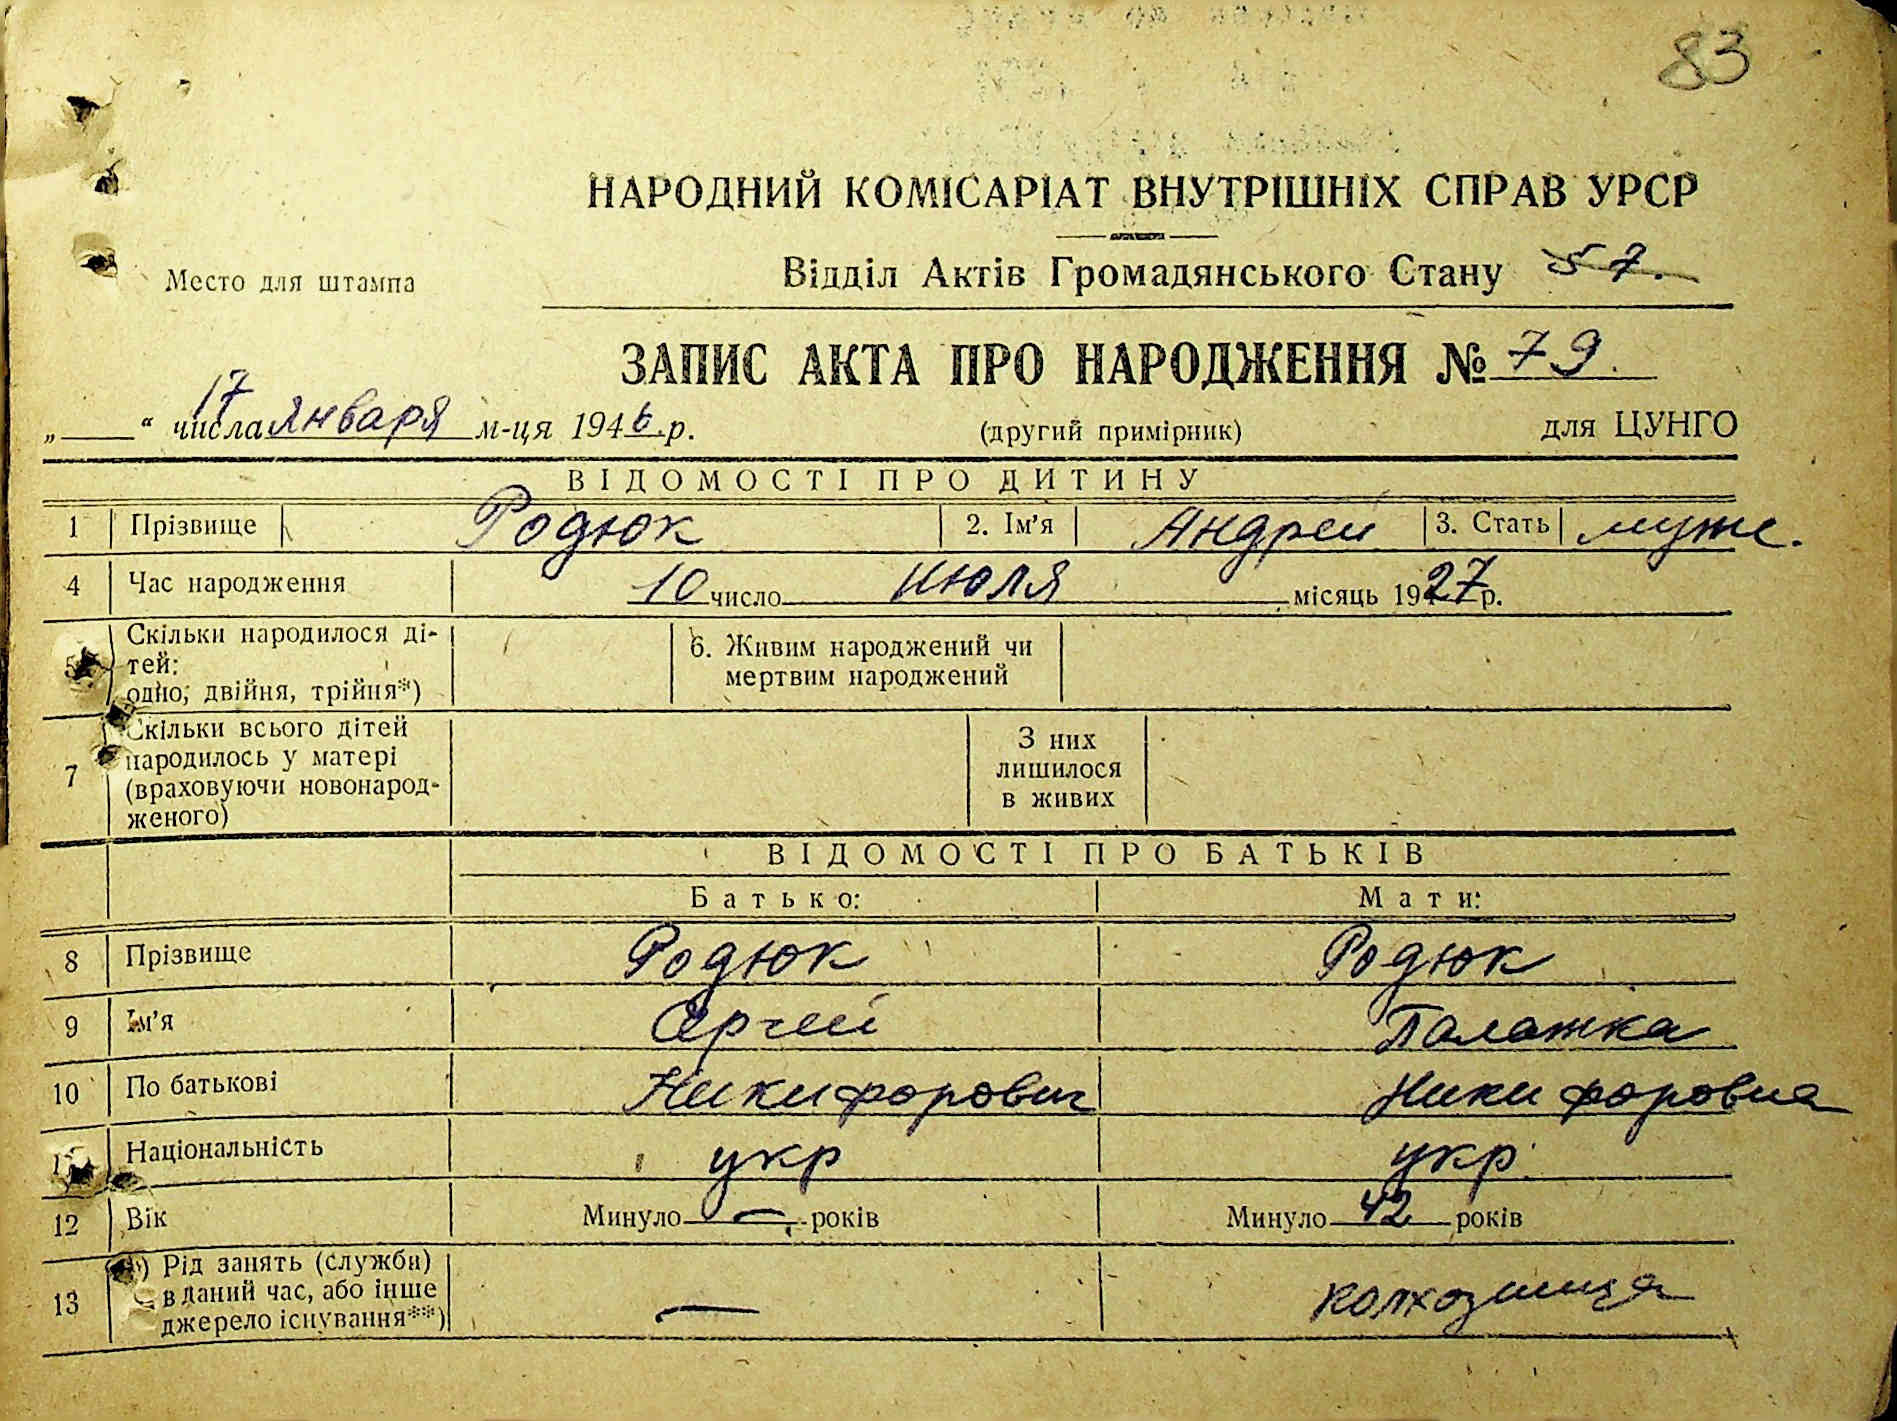 83
НАРОДНИЙ КОМІСАРІАТ ВНУТРІШНІХ СПРАВ УРСР
Место для штампа
Відділ Актів Громадянського Стану 57.
ЗАПИС АКТА ПРО НАРОДЖЕННЯ № 79.
„ “ 17 числа января м-ця 1946 р. (другий примірник) для ЦУНГО
ВІДОМОСТІ ПРО ДИТИНУ
1 Прізвище Родюк 2. Ім’я Андрей 3. Стать муж.
4 Час народження 10 число июля місяць 1927 р.
5 Скільки народилося ді-
тей:
одно, двійня, трійня*)
6. Живим народжений чи
мертвим народжений
7 Скільки всього дітей
народилось у матері
(враховуючи новонарод-
женого)
З них
лишилося
в живих
ВІДОМОСТІ ПРО БАТЬКІВ
Батько: Мати:
8 Прізвище Родюк Родюк
9 Ім’я Сергей Палажка
10 По батькові Никифорович Никифоровна
11 Національність укр укр.
12 Вік Минуло — років Минуло 42 років
13 а) Рід занять (служби)
в даний час, або інше
джерело існування**)
— колхозница